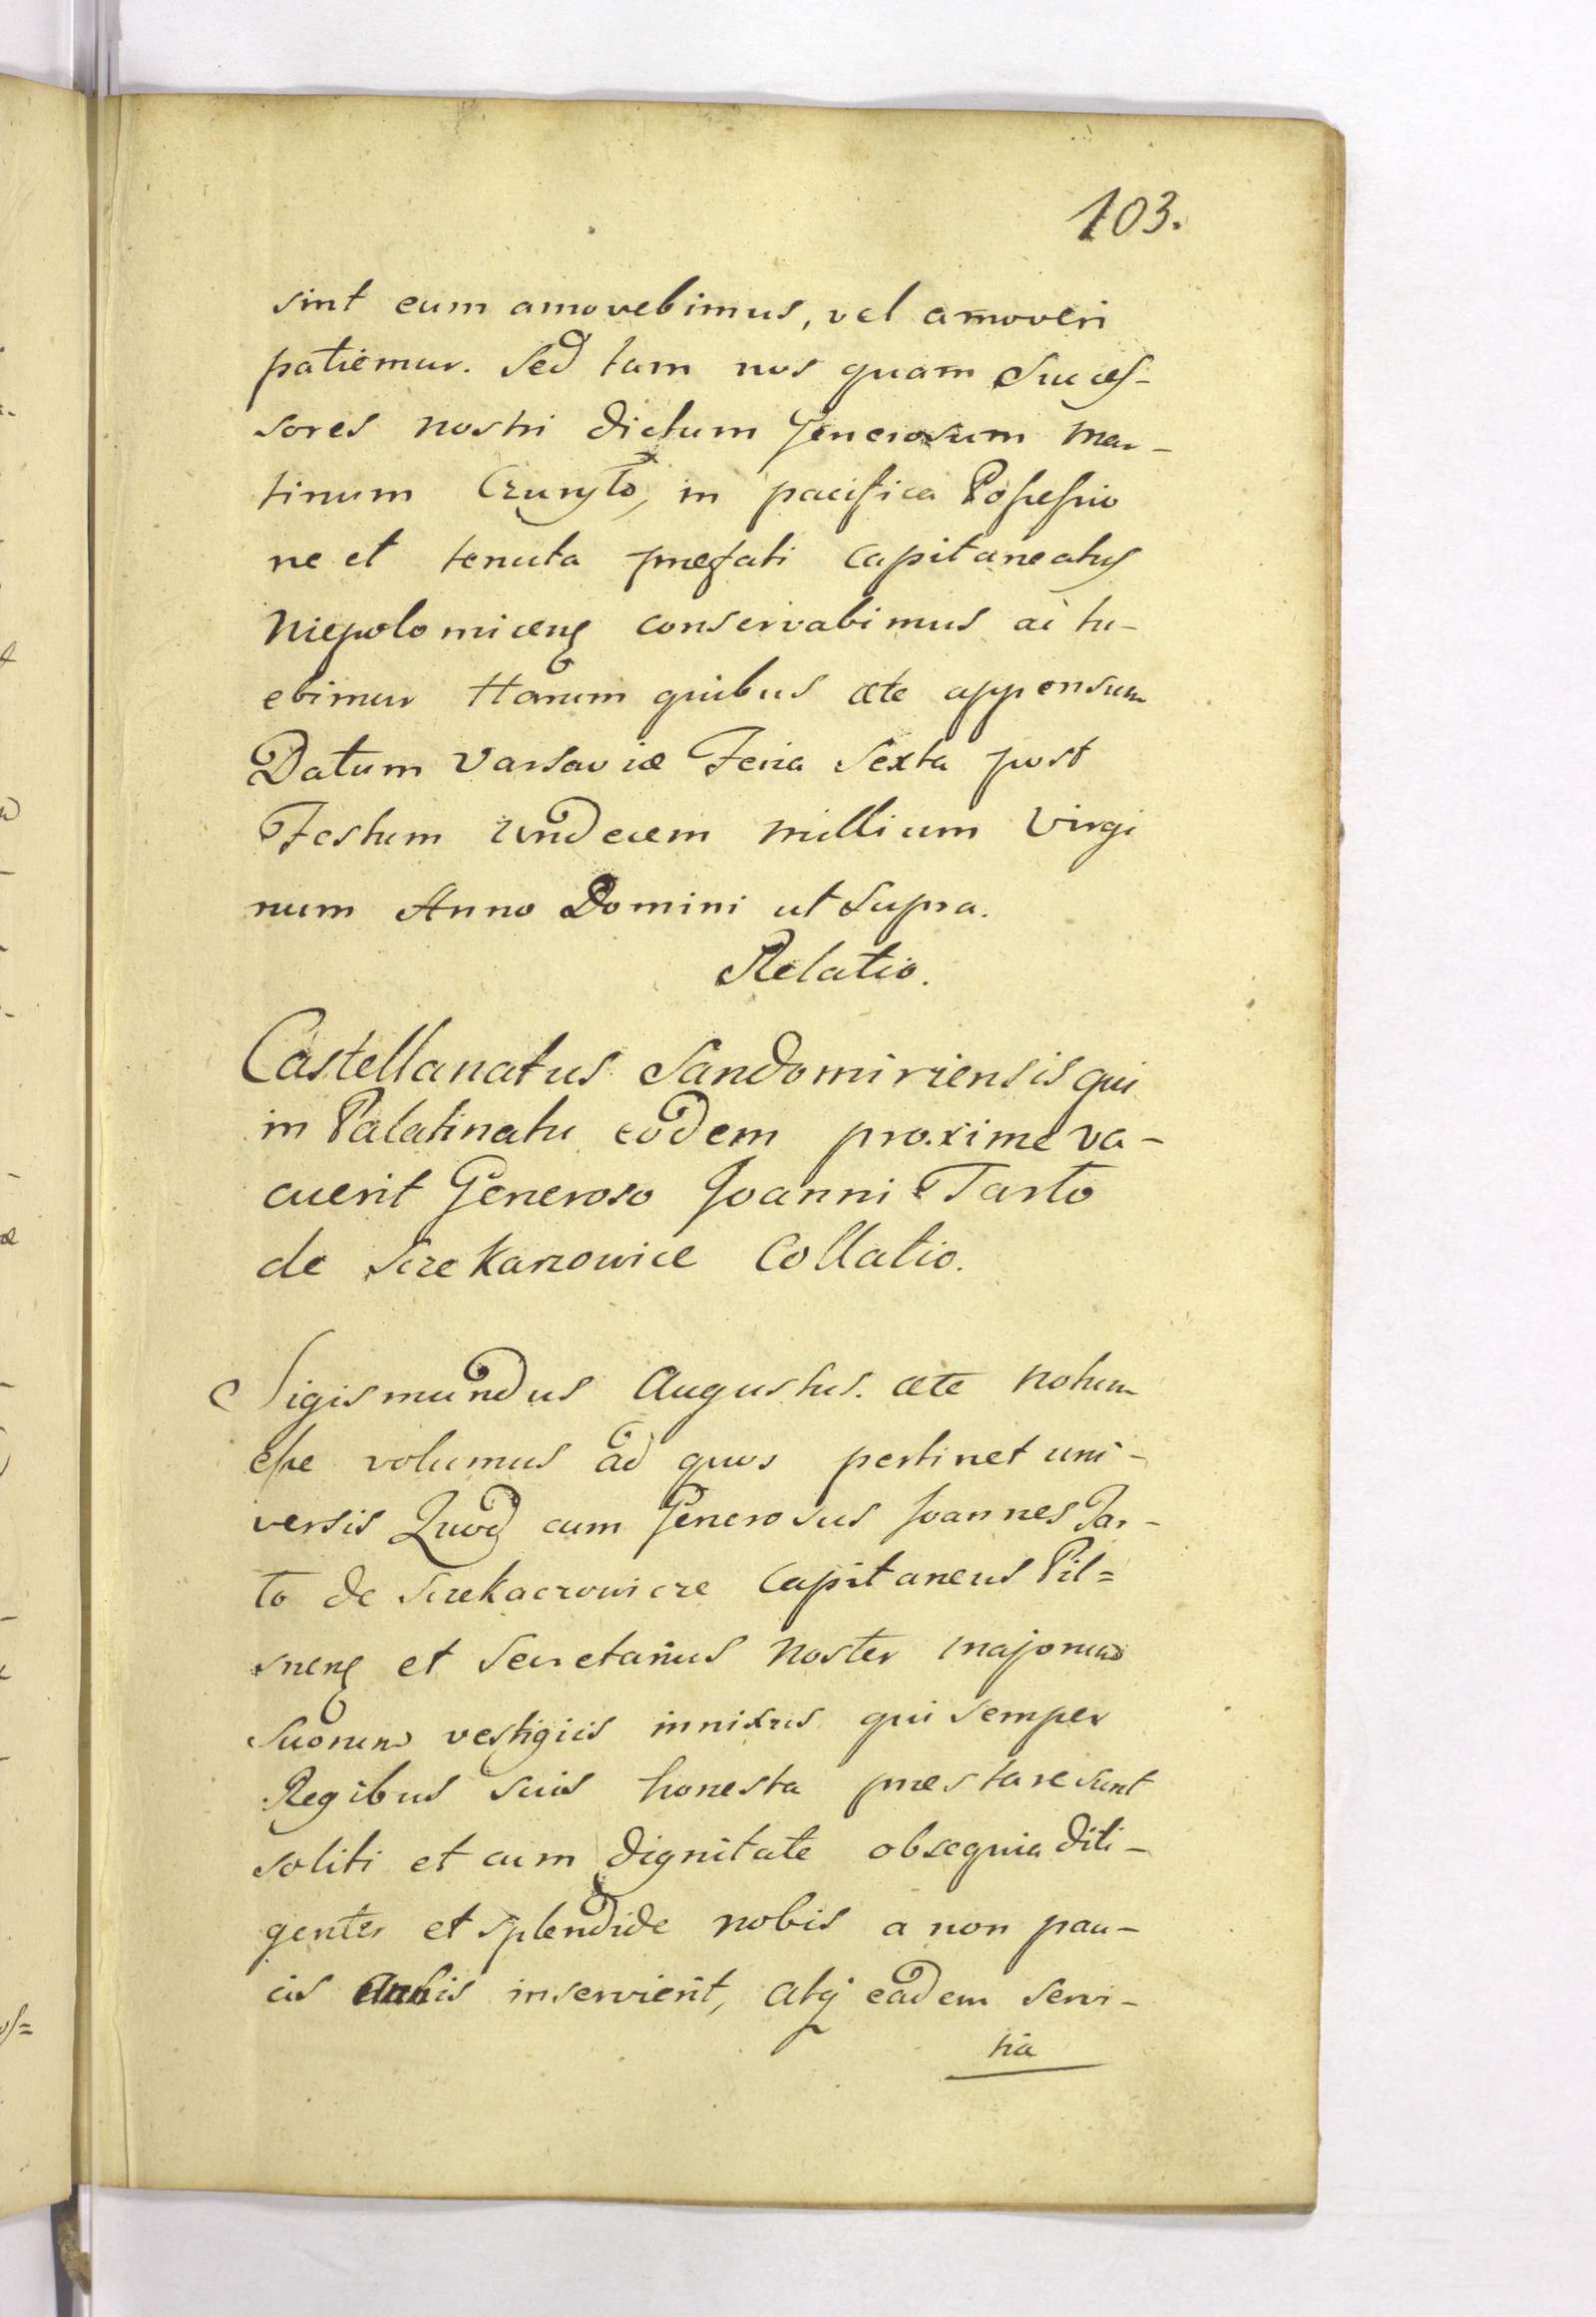 103.
sint eum amovebimus, vel amoveri
patiemur. Sed tam nos quam Succes-
sores nostri dictum Generosum Mar-
tinum Czuryło, in pacifica Possessio
ne et tenuta præfati Capitaneatus
Niepolomicenς conservabimus ac tu-
ebimur Harum quibus ætc appensum
Datum Varsaviæ Feria Sexta post
Festum Undecem Millium Virgi
num Anno Domini ut Supra.
Relatio.
Castellanatus Sandomiriensis qui
in Palatinatu eodem proxime va-
cuerit Generoso Joanni Tarło
de Sczekarzowice Collatio.
Sigismundus Augustus. ætc notum
esse volumus ad quos pertinet uni-
versis Quod cum Generosus Joannes Tar-
ło de Sczekaczowicze Capitaneus Pil=
snenς et Secretarius Noster majorum
Suorum vestigiis innixus qui semper
Regibus suis honesta præstare sunt
soliti et cum dignitate obsequia dili-
genter et splendide nobis a non pau-
cis Annis inservierit, atq eadem servi-
tia